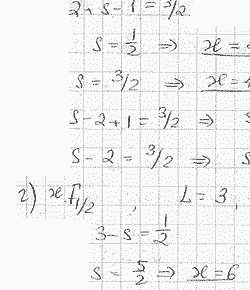 2 + s - 1 = 3/2
s = 1/2 ⇒ x =
s = 3/2 ⇒ x =
s - 2 + 1 = 3/2 ⇒ s
s - 2 = 3/2 ⇒ s
2) x F1/2 , L = 3,
3 - s = 1/2
s = 5/2 ⇒ x = 6